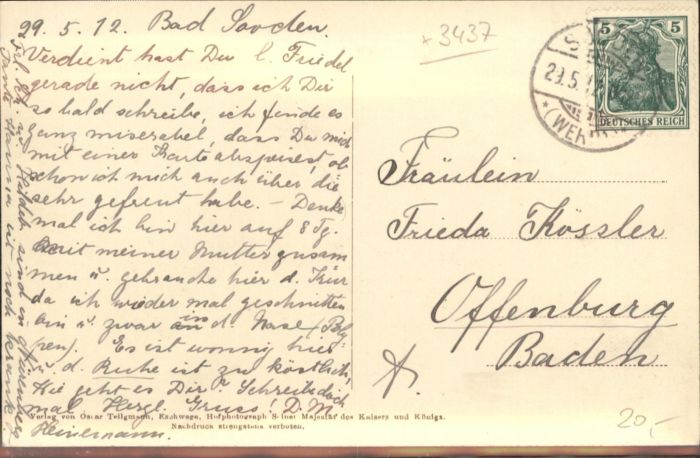 29. 5. 12. Bad Sooden.
Verdient hast Du l. Friedel
gerade nicht, dass ich Dir
so bald schreibe, ich finde es
ganz miserabel, dass Du mich
mit einer Karte abspeisest, ob
schon ich mich auch über die
sehr gefreut habe. – Denke
mal ich bin hier auf 8 Tg.
mit meiner Mutter zusam
men u. gebrauche hier d. Kur
da ich wieder mal geschnitten
bin u. zwar in d. Nase (Poly
pen). Es ist wonnig hier
u. d. Ruhe ist zu köstlich.
Wie geht es Dir? Schreib doch
mal. Herzl. Gruss. D. M.
Heinemann.
Tante Hanna ist noch krank
+3437
5 5
DEUTSCHES REICH
29.5.12
Fräulein
Frieda Kössler
Offenburg
Baden
20,-
Verlag von Oscar Tellgmann, Eschwege, Hofphotograph Seiner Majestät des Kaisers und Königs.
Nachdruck strengstens verboten.